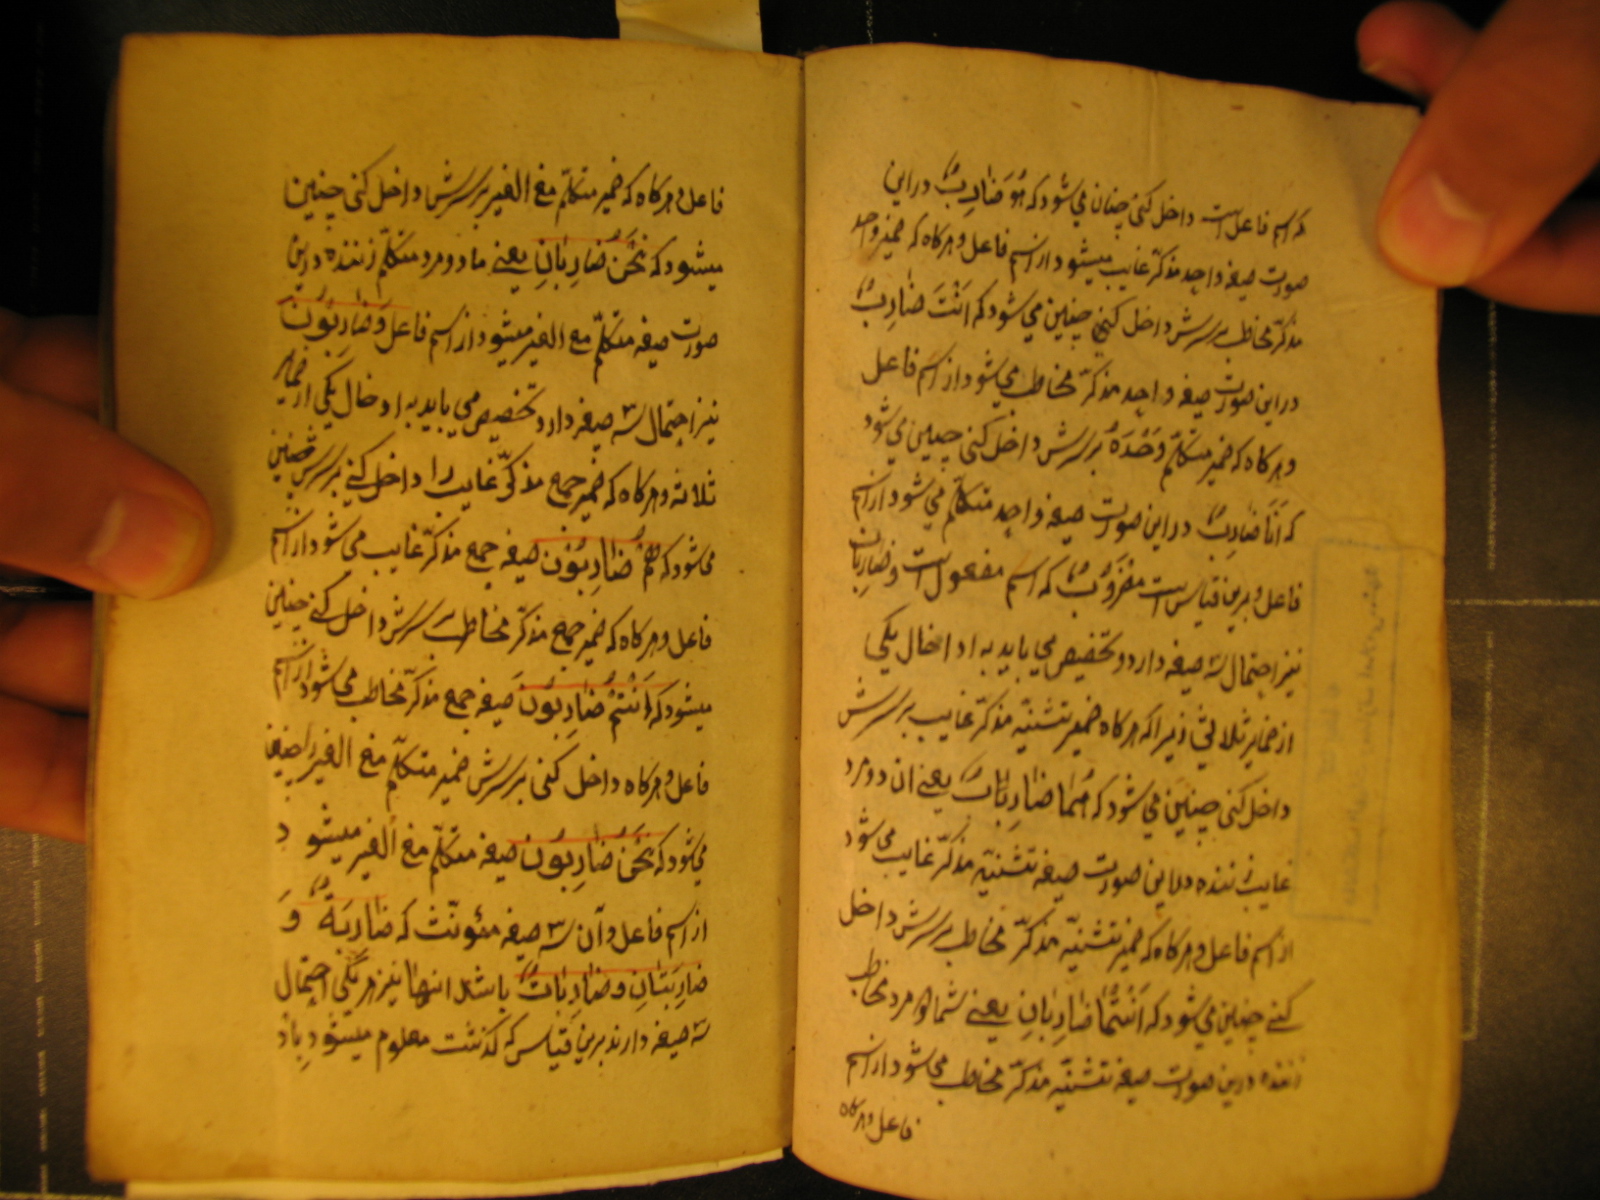 که اسم فاعل است داخل کنی چنان می شود که هُوَ ضَارِبٌ در این
صورت صیغه واحد مذکّر غایب میشود از اسم فاعل و هرکاه که ضمیر واحد
مذکّر مخاطب بر سرش داخل کنی چنین می شود که اَنْتَ ضَارِبٌ
در این صورت صیغه واحد مذکّر مخاطب می شود از اسم فاعل
و هرکاه که ضمیر متکلّم وَحْدَهُ بر سرش داخل کنی چنین می شود
که اَنَا ضَارِبٌ در این صورت صیغه واحد متکلّم می شود از اسم
فاعل و برین قیاس است مَضْرُوبٌ که اسم مفعول است و ضَارِبَانِ
نیز احتمال سه صیغه دارد و تخصیص می یابد به ادخال یکی
از ضمایر ثلاثی زیرا که هرکاه ضمیر تثنیّه مذکّر غایب بر سرش
داخل کنی چنین می شود که هُمَا ضَارِبَانِ یعنے ان دو مرد
غایب زننده در این صورت صیغه تثنیّه مذکّر غایب می شود
از اسم فاعل و هرکاه که ضمیر تثنیّه مذکّر مخاطب بر سرش داخل
کنے چنین می شود که اَنْتُمَا ضَارِبَانِ یعنے شما دو مرد مخاطب
زننده درین صورت صیغه تثنیّه مذکّر مخاطب می شود از اسم
فاعل و هرکاه
فاعل و هرکاه که ضمیر متکلّم مع الغیر بر سرش داخل کنی چنین
میشود که نَحْنُ ضَارِبَانِ یعنے ما دو مرد متکلّم زننده درین
صورت صیغه متکلّم مع الغیر میشود از اسم فاعل وَ ضَارِبُونَ
نیز احتمال سه صیغه دارد تخصیص می یابد به ادخال یکی از ضمایر
ثلاثه و هرکاه که ضمیر جمع مذکّر غایب را داخل کنے بر سرش چنین
می شود که هُمْ ضَارِبُونَ صیغه جمع مذکّر غایب می شود از اسم
فاعل و هرکاه که ضمیر جمع مذکّر مخاطب بر سرش داخل کنے چنین
میشود که اَنْتُمْ ضَارِبُونَ صیغه جمع مذکّر مخاطب می شود از اسم
فاعل و هرکاه داخل کنی بر سرش ضمیر متکلّم مع الغیر را چنین
می شود که نَحْنُ ضَارِبُونَ صیغه متکلّم مع الغیر میشود
از اسم فاعل و آن سه صیغه مئونّث که ضَارِبَةٌ وَ
ضَارِبَتَانِ و ضَارِبَاتٌ باشد انها نیز هر یکی احتمال
سه صیغه دارند برین قیاس که کذشت معلوم میشود